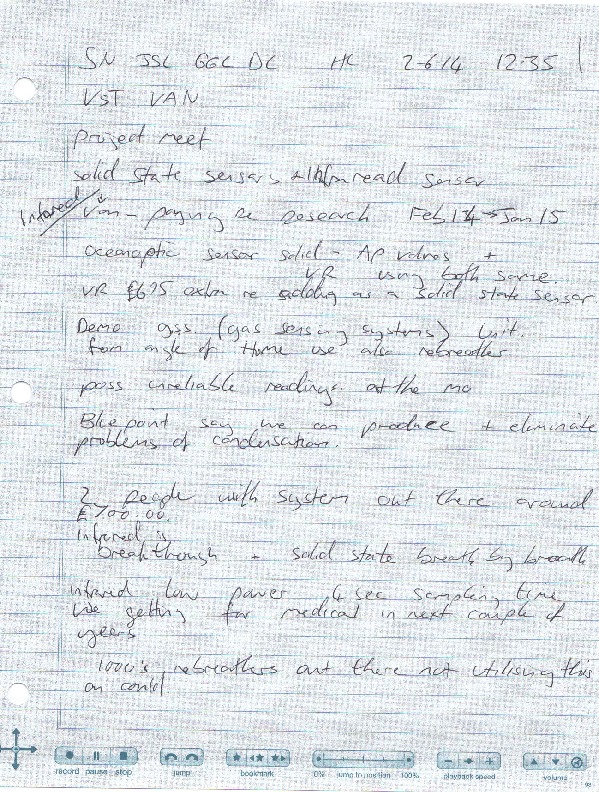 SN JSL GGL DC HC 2-6-14 12:35
VST VAN
project meet
solid state sensors + Infraread sensor
Infrared
Van - paying re research Feb 14 → Jan 15
oceanoptic sensor solid - AP valves +
VR using both same.
VR £675 extra re adding as a solid state sensor
Demo gss (gas sensing systems) Unit.
from angle of Home use also rebreather
poss unreliable readings at the mo
Blue point say we can produce + eliminate
problems of condensation.
2 people with system out there around
£700.00.
Infrared is
breakthrough + solid state breath by breath
infrared low power 4 sec sampling time
We getting for medical in next couple of
years
1000's rebreathers out there not utilising this
on could
record pause stop
jump
bookmark
0% jump to position 100%
playback speed
volume
93